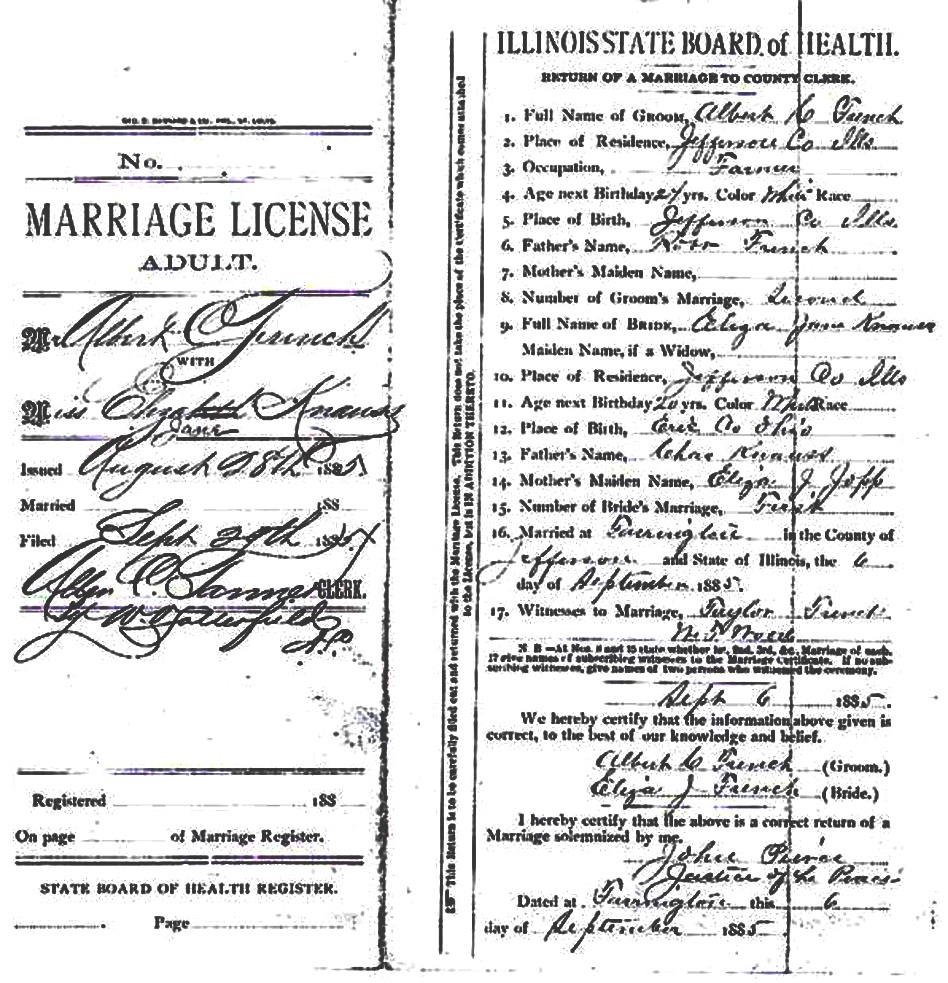 GEO. D. BARNARD & CO., PRS., ST. LOUIS.
No.
MARRIAGE LICENSE
ADULT.
Mr Albert C French
WITH
Miss Elizabeth Knauss
Jane
Issued August 28th 1885
Married 188
Filed Sept 29th 1885
CLERK.
By W. Satterfield
Registered 188
On page of Marriage Register.
STATE BOARD OF HEALTH REGISTER.
Page
This Return is to be carefully filled out and returned with the Marriage License. This Return does not take the place of the Certificate which comes attached
to the License, but is IN ADDITION THERETO.
ILLINOIS STATE BOARD of HEALTH.
RETURN OF A MARRIAGE TO COUNTY CLERK.
1. Full Name of GROOM, Albert C French
2. Place of Residence, Jefferson Co Ills
3. Occupation, Farmer
4. Age next Birthday 27 yrs. Color White Race
5. Place of Birth, Jefferson Co Ills
6. Father's Name, Robt French
7. Mother's Maiden Name,
8. Number of Groom's Marriage, Second
9. Full Name of BRIDE, Eliza Jane Knauss
Maiden Name, if a Widow,
10. Place of Residence, Jefferson Co Ills
11. Age next Birthday 20 yrs. Color White Race
12. Place of Birth, Erie Co Ohio
13. Father's Name, Chas Knauss
14. Mother's Maiden Name, Eliza J Jopp
15. Number of Bride's Marriage, First
16. Married at Farrington in the County of
Jefferson and State of Illinois, the 6
day of September 1885.
17. Witnesses to Marriage, Taylor French
N. B.—At Nos. 8 and 15 state whether 1st, 2nd, 3rd, &c., Marriage of each.
17 give names of subscribing witnesses to the Marriage Certificate. If no sub-
scribing witnesses, give names of two persons who witnessed the ceremony.
Sept 6 1885.
We hereby certify that the information above given is
correct, to the best of our knowledge and belief.
Albert C French (Groom.)
Eliza J French (Bride.)
I hereby certify that the above is a correct return of a
Marriage solemnized by me.
John Pierce
Justice of the Peace
Dated at Farrington this 6
day of September 1885